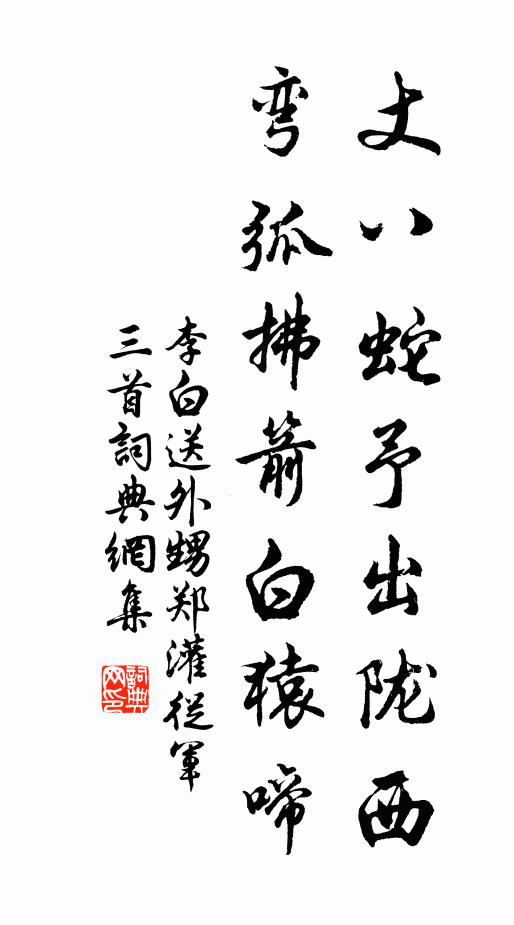 丈八蛇予出陇西
弯弧拂箭白猿啼
李白送外甥郑灌從軍
三首詞典網集
詞典
网印